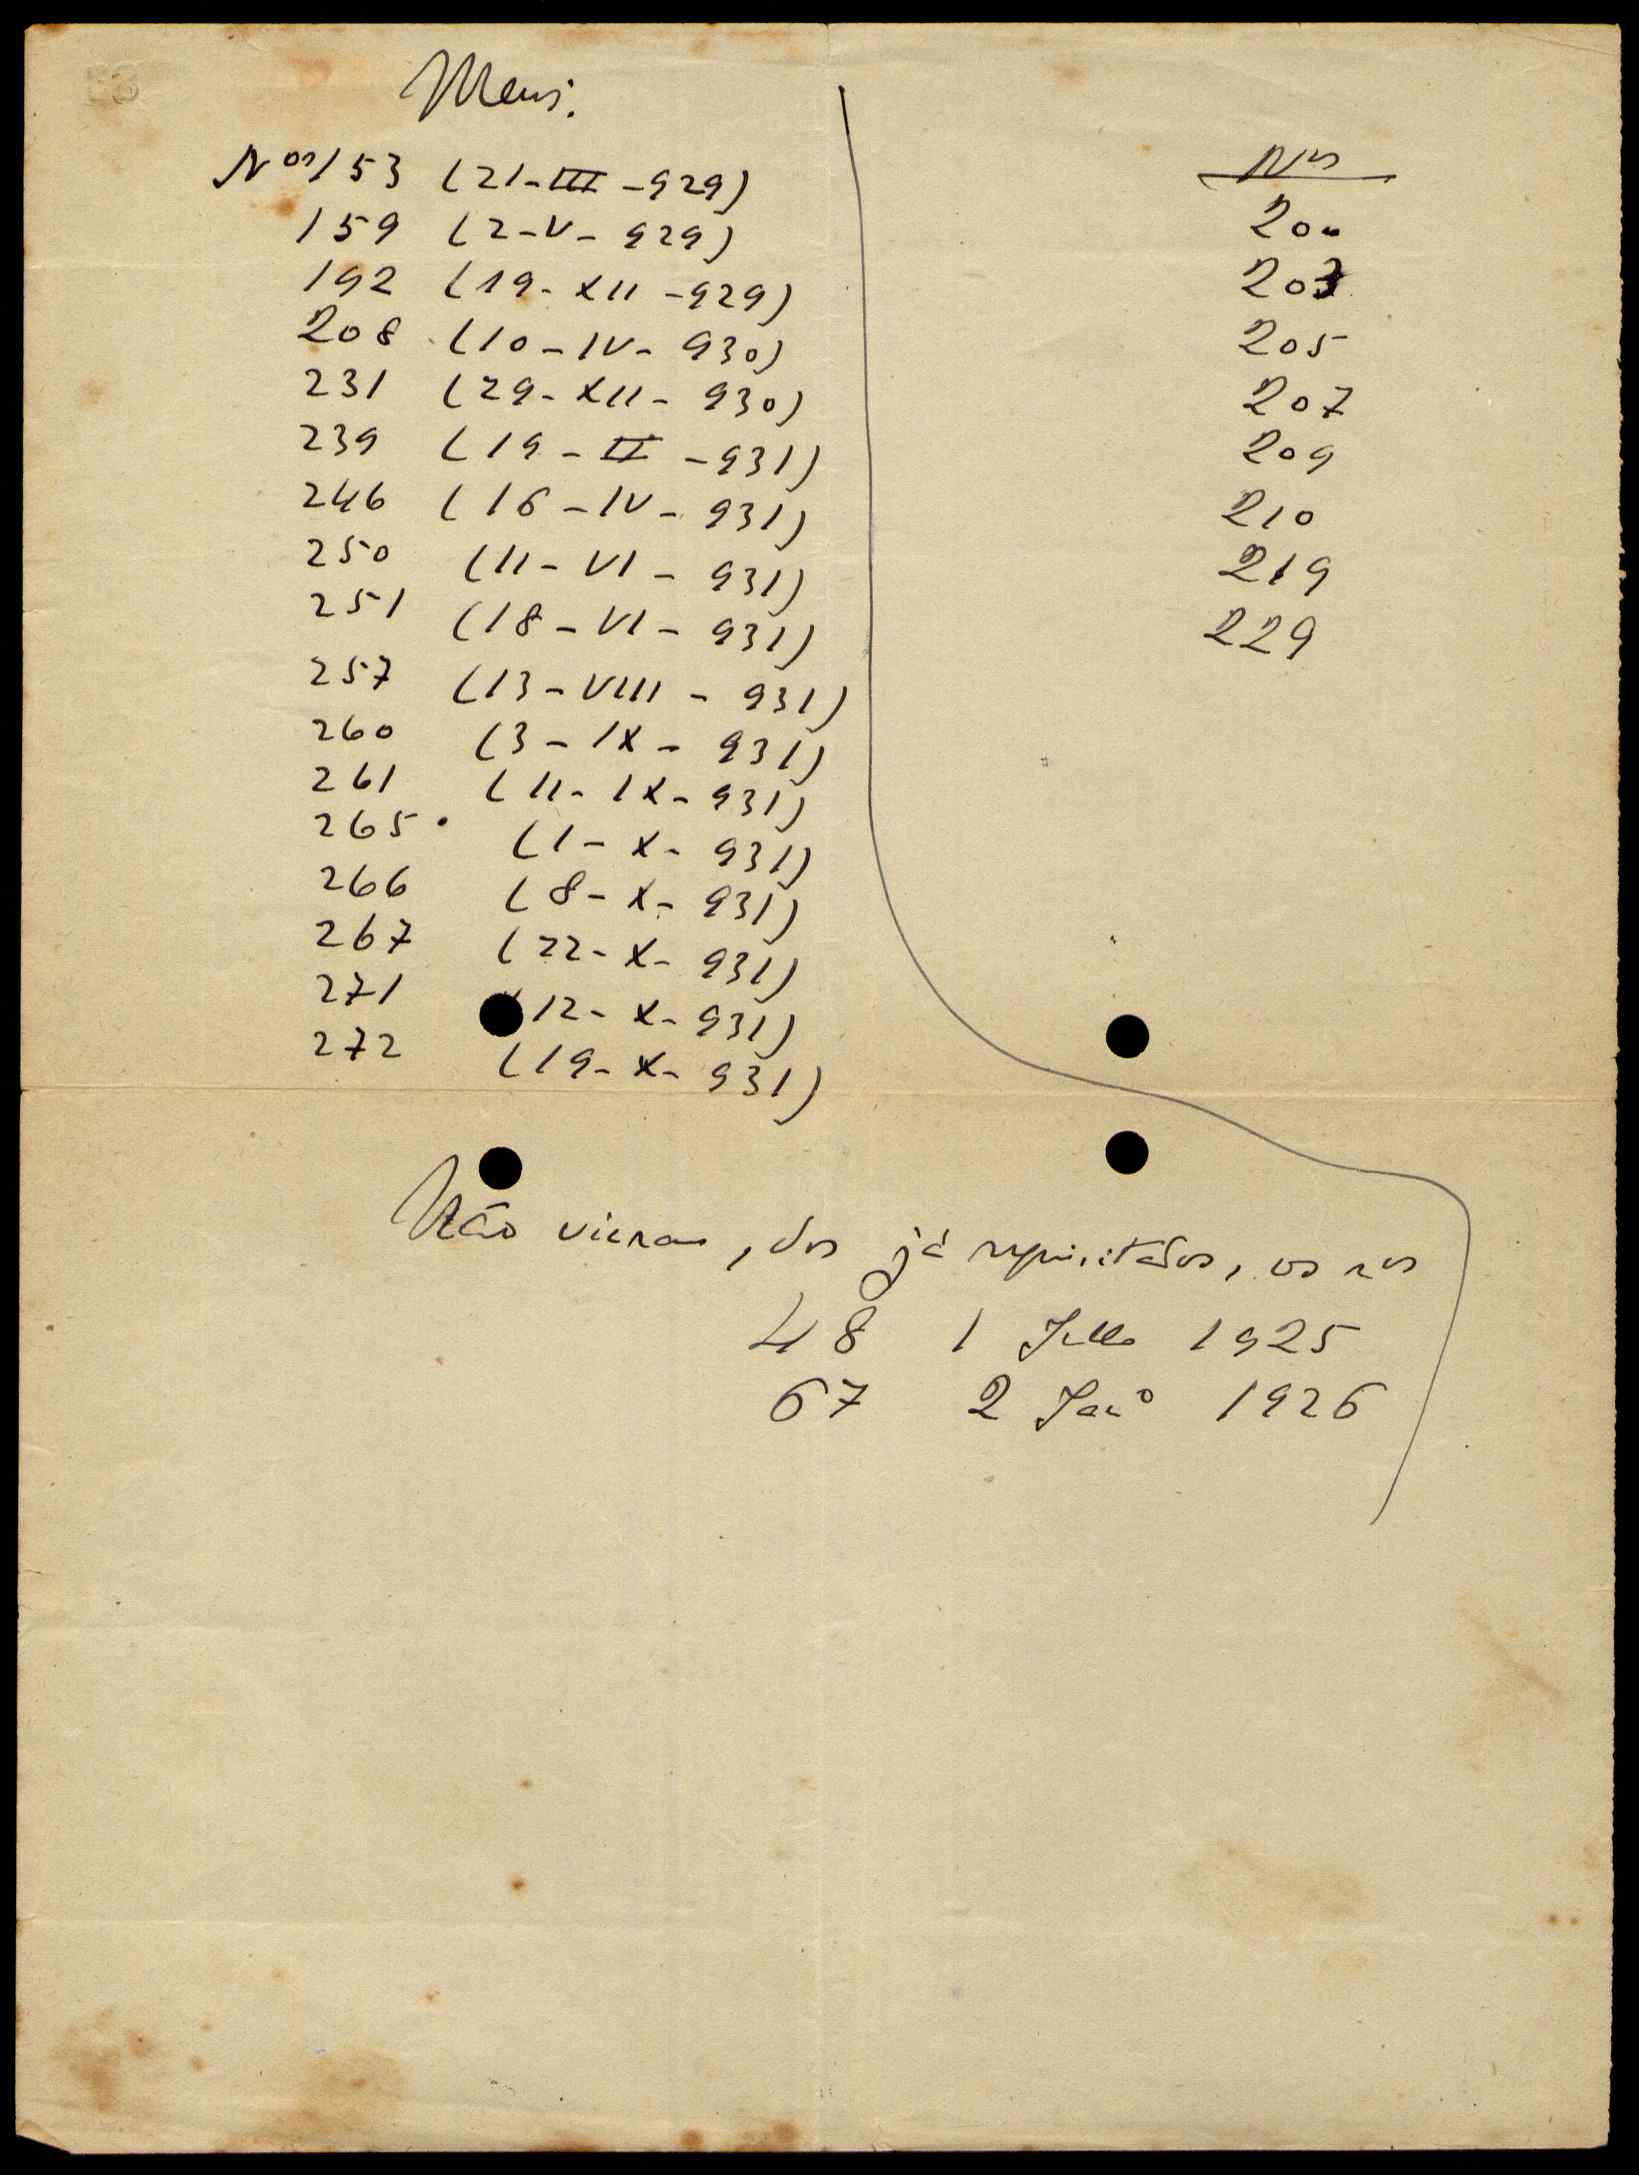 Meus.
Nos 153 (21-III-929)
159 (2-V-929)
192 (19-XII-929)
208 (10-IV-930)
231 (29-XII-930)
239 (19-II-931)
246 (16-IV-931)
250 (11-VI-931)
251 (18-VI-931)
257 (13-VIII-931)
260 (3-IX-931)
261 (11-IX-931)
265 (1-X-931)
266 (8-X-931)
267 (22-X-931)
271 12-X-931)
272 (19-X-931)
Nos
200
203
205
207
209
210
219
229
Não vieram, dos já requisitados, os nos
48 1 Julho 1925
67 2 Janº 1926